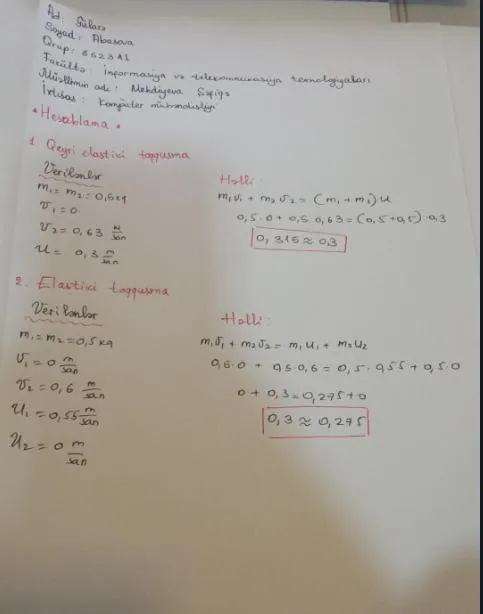 Ad: Gülarə
Soyad: Abasova
Qrup: 6623A1
Fakültə: İnformasiya və telekommunikasiya texnologiyaları
Müəllimin adı: Mehdiyeva Şəfiqə
İxtisas: Kompüter mühəndisliyi
• Hesablama •
1. Qeyri elastiki toqquşma
Verilənlər
m₁ = m₂ = 0,5 kq
v₁ = 0
v₂ = 0,63 m/san
u = 0,3 m/san
Həlli:
m₁v₁ + m₂v₂ = (m₁ + m₂)u
0,5·0 + 0,5·0,63 = (0,5+0,5)·0,3
0,315 ≈ 0,3
2. Elastiki toqquşma
Verilənlər
m₁ = m₂ = 0,5 kq
v₁ = 0 m/san
v₂ = 0,6 m/san
u₁ = 0,55 m/san
u₂ = 0 m/san
Həlli:
m₁v₁ + m₂v₂ = m₁u₁ + m₂u₂
0,5·0 + 0,5·0,6 = 0,5·0,55 + 0,5·0
0 + 0,3 = 0,275 + 0
0,3 ≈ 0,275